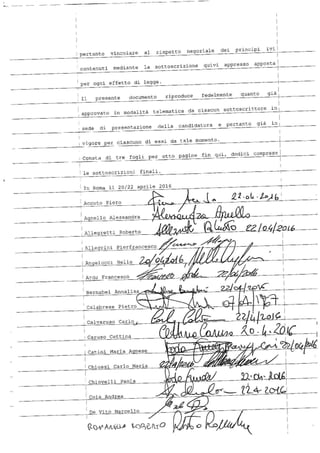 pertanto vincolare al rispetto negoziale dei principi ivi
contenuti mediante la sottoscrizione quivi appresso apposta
per ogni effetto di legge.
Il presente documento riproduce fedelmente quanto già
approvato in modalità telematica da ciascun sottoscrittore in
sede di presentazione della candidatura e pertanto già in
vigore per ciascuno di essi da tale momento.
Consta di tre fogli per otto pagine fin qui, dodici comprese
le sottoscrizioni finali.
In Roma, il 20/22 aprile 2016
Acquto Piero 22.04.2016
Agnello Alessandra Alessandra Agnello
Allegretti Roberto Allegretti Roberto 22/04/2016
Allegrini Pierfrancesco
Angelucci Nello 20/04/2016
Ardu Francesco 20/04/2016
Bernabei Annalisa 22/04/2016
Calabrese Pietro
Calvaruso Carlo 22/4/2016
Caruso Cettina Cettina Caruso 20.4.2016
Catini Maria Agnese 22/04/2016
Chiossi Carlo Maria 22/04/2016
Chiovelli Paola 22.04.2016
Coia Andrea 22.4.2016
De Vito Marcello
ROMANIA ROBERTO